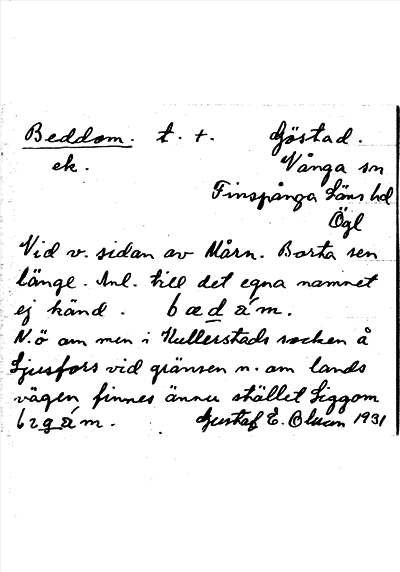 Beddom. t. +. Göstad.
ek. Vånga sn
Finspånga Läns hd
Ögl
Vid v. sidan av Mårn. Borta sen
länge. Anl. till det egna namnet
ej känd. bædám.
N.ö om men i Kullerstads socken å
Ljusfors vid gränsen n. om lands
vägen finnes ännu stället Liggom
Gustaf E. 1931